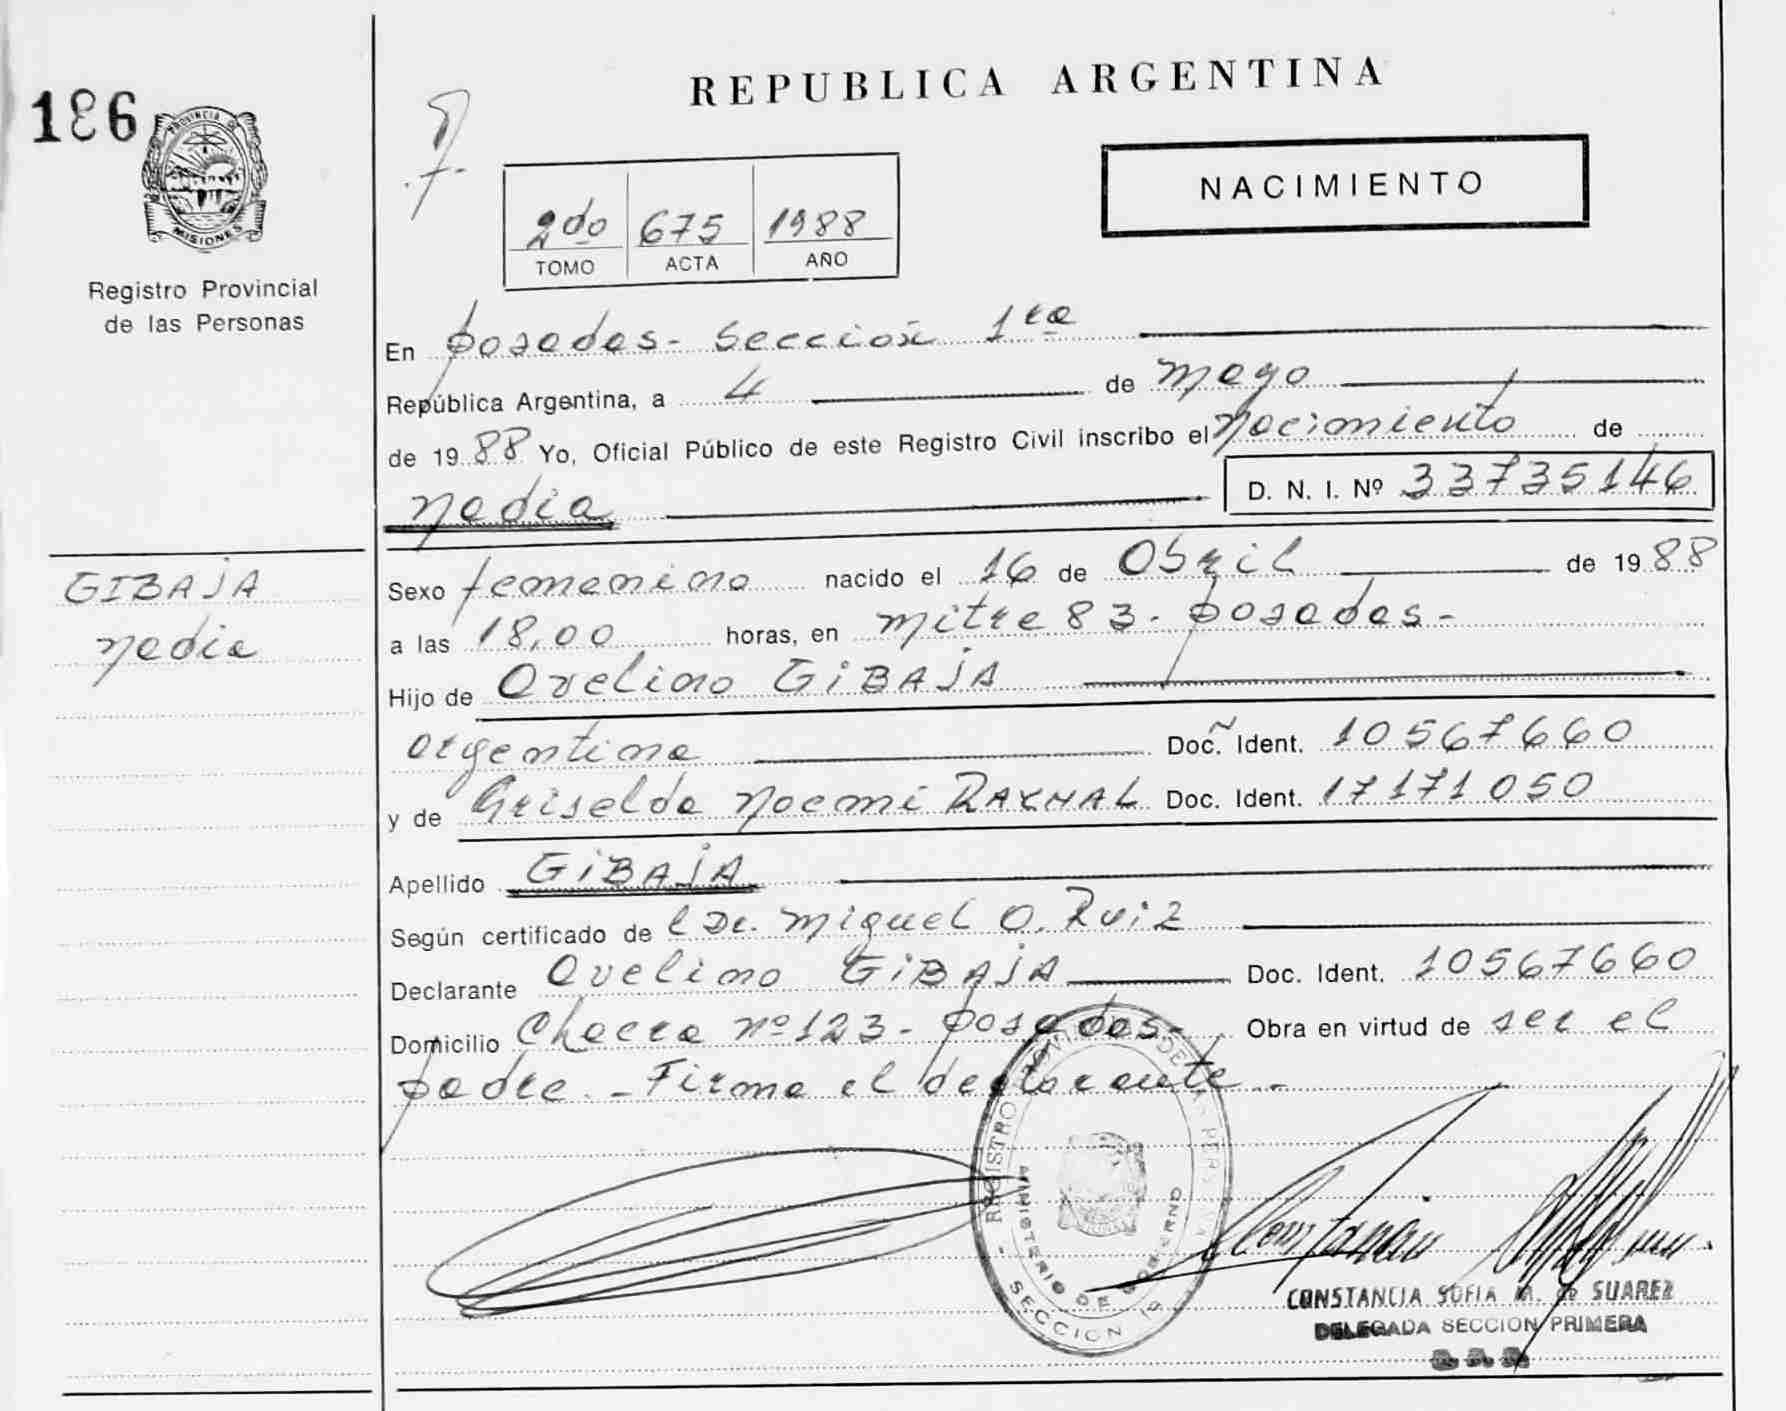 REPUBLICA ARGENTINA
186
PROVINCIA DE
MISIONES
Registro Provincial
de las Personas
NACIMIENTO
2do 675 1988
TOMO ACTA AÑO
En Posadas - Sección 1ra
República Argentina, a 4 de mayo
de 1988 Yo, Oficial Público de este Registro Civil inscribo el Nacimiento de
Nadia D. N. I. Nº 33735146
GIBAJA
Nadia
Sexo femenino nacido el 16 de Abril de 1988
a las 18,00 horas, en Mitre 83 - Posadas -
Hijo de Avelino GIBAJA
argentina Doc. Ident. 10567660
y de Griselda Noemi RAYNAL Doc. Ident. 17171050
Apellido GIBAJA
Según certificado del Dr. Miguel O. Ruiz
Declarante Avelino GIBAJA Doc. Ident. 10567660
Domicilio Chacra nº 123 - Posadas - Obra en virtud de ser el
padre. - Firma el declarante -
REGISTRO PROVINCIAL DE LAS PERSONAS
MINISTERIO DE GOBIERNO
SECCION 1ª
CONSTANCIA SOFIA M. de SUAREZ
DELEGADA SECCION PRIMERA